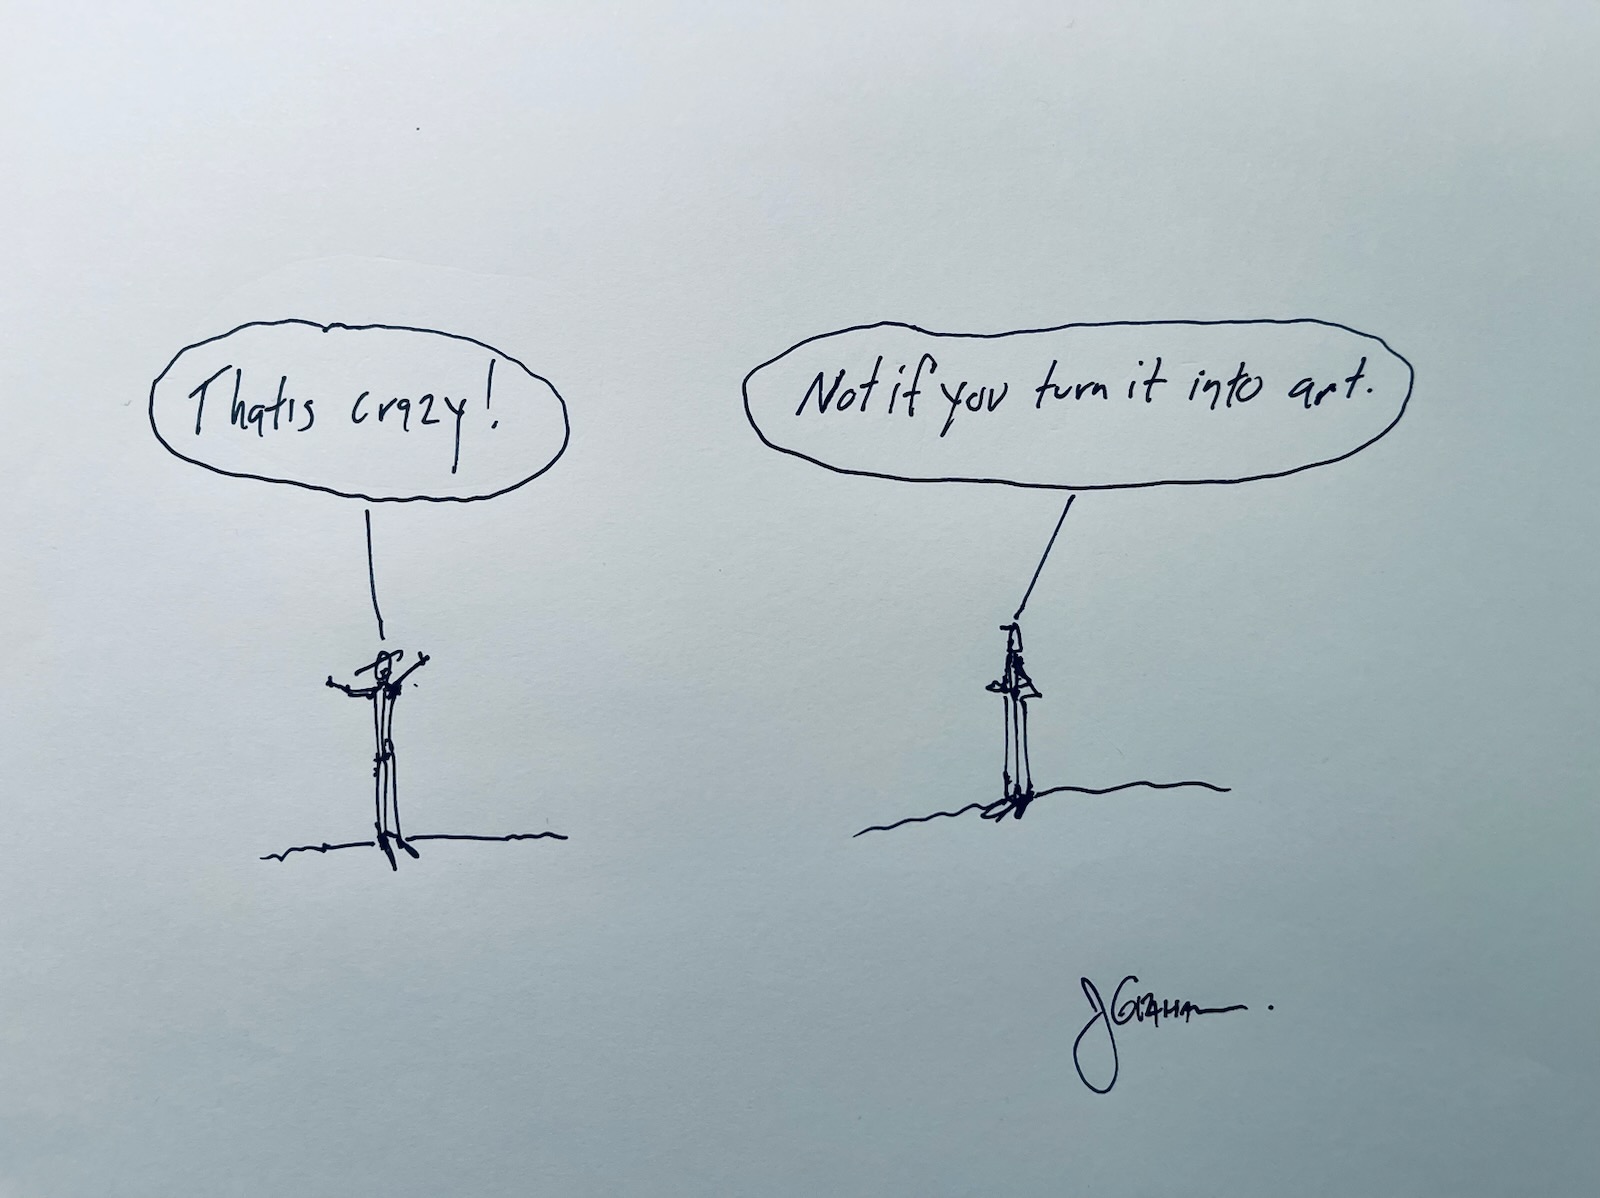 Thatis crazy!
Not if you turn it into art.
J GRAHAM.